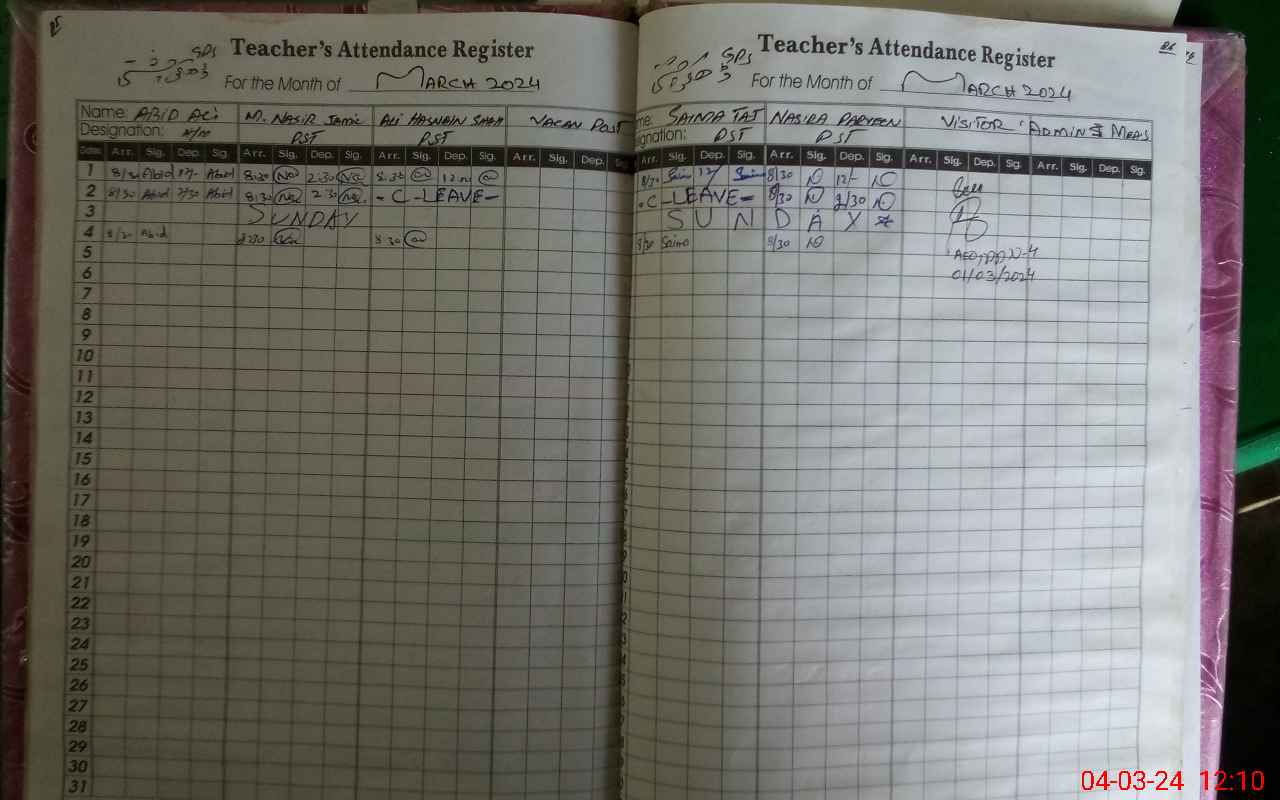 Teacher's Attendance Register
For the Month of MARCH 2024
Name: ABID ALi M. NASIR JAMiL ALi HASNAIN SHAH VACAN POST
Designation: PST PST
Dates Arr. Sig. Dep. Sig. Arr. Sig. Dep. Sig. Arr. Sig. Dep. Sig. Arr. Sig. Dep. Sig.
1 8/30 Abid 12/- Abid 8:30 2:30 8:30 12:00
2 8/30 Abid 2/30 Abid 8:30 2:30 - C - LEAVE -
3 SUNDAY
4 8/30 Abid 8:30 8 30
5
6
7
8
9
10
11
12
13
14
15
16
17
18
19
20
21
22
23
24
25
26
27
28
29
30
31
GPS
Teacher's Attendance Register
For the Month of MARCH 2024
me: SAIMA TAJ NASIRA PARVEEN VISITOR ADMIN & MEAS
gnation: PST PST
Arr. Sig. Dep. Sig. Arr. Sig. Dep. Sig. Arr. Sig. Dep. Sig. Arr. Sig. Dep. Sig.
8/30 Saima 12/ Saima 8/30 12/-
- C - LEAVE - 8/30 2/30
SUNDAY
8/30 Saima 8/30
01/03/2024
04-03-24 12:10